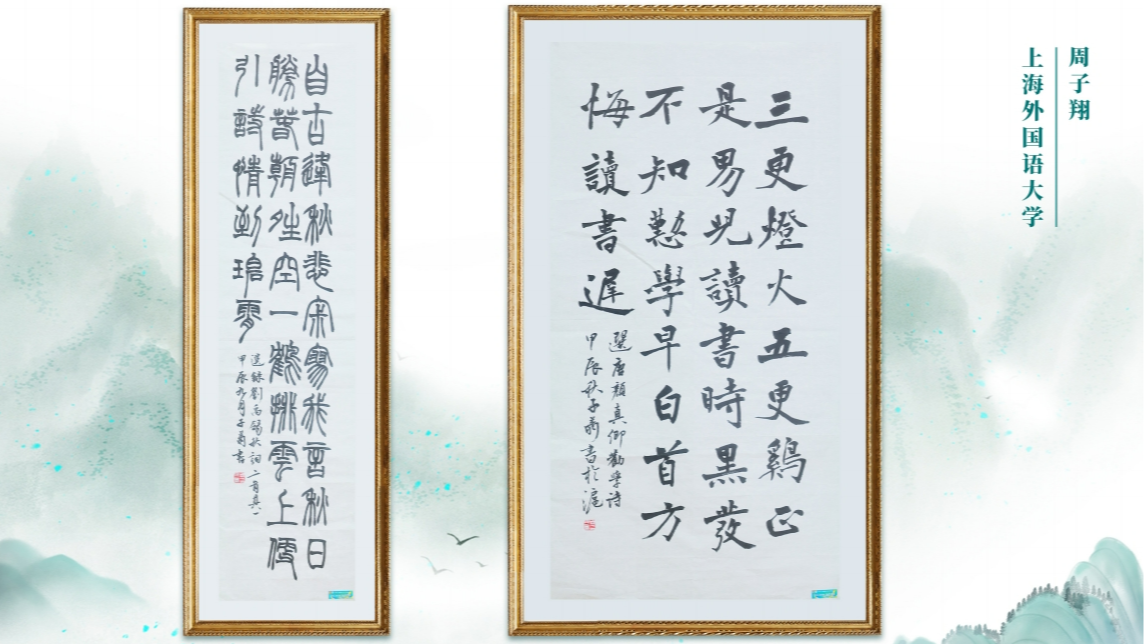 周子翔
上海外国语大学
三更燈火五更鷄正
是男児讀書時黑發
不知懃學早白首方
悔讀書遲
選唐顏真卿勸學詩
甲辰秋子翔書於滬
自古逢秋悲寂寥我言秋日
勝春朝晴空一鶴排雲上便
引詩情到碧霄
選錄劉禹錫秋詞二首其一
甲辰九月子翔書